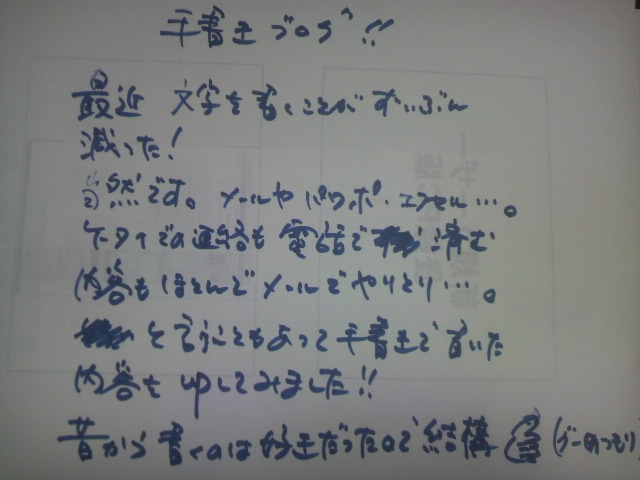 手書きブログ!!
最近 文字を書くことがずいぶん
減った!
当然です。メールやパワポ・エクセル…。
ケータイでの連絡も電話で済む
内容もほとんどメールでやりとり…。
と言うこともあって手書きで書いた
内容をupしてみました!!
昔から書くのは好きだったので結構